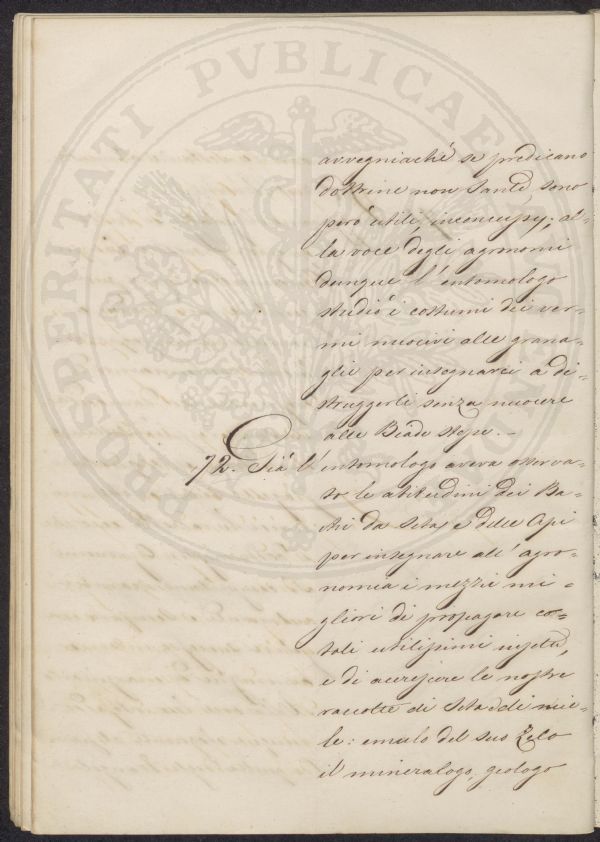 PROSPERITATI PVBLICAE
avvegniaché se predicano
dottrine non Sante, sono
però utili, inconcusse; al-
la voce degli agronomi
dunque l'entomologo
studiò i costumi dei ver-
mi nuocivi alle grana-
glie per insegnarci a di-
struggerli senza nuocere
alle Biade stesse. -
72. Già l'entomologo aveva osserva-
to le attitudini dei Ba-
chi da Seta, e delle Api
per insegnare all'agro-
nomia i mezzi mi-
gliori di propagare co-
tali utilissimi insetti,
e di accrescere le nostre
raccolte di Seta e di mie-
le: emulo del suo Zelo
il mineralogo, geologo